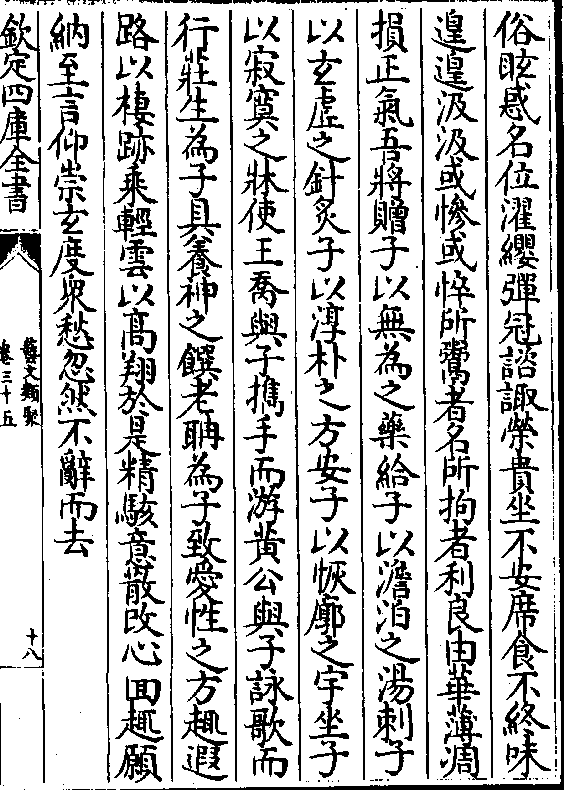 俗眩惑名位濯纓彈冠諮諏榮貴坐不安席食不終味
遑遑汲汲或慘或悴所鬻者名所拘者利良由華薄凋
損正氣吾將贈子以無為之藥給子以澹泊之湯刺子
以玄虛之針炙子以淳朴之方安子以恢廓之宇坐子
以寂寞之牀使王喬與子擕手而游黃公與子詠歌而
行莊生為子具養神之饌老聃為子致愛性之方趣遐
路以棲跡乘輕雲以高翔於是精駭意散改心回趣願
納至言仰崇玄度衆愁忽然不辭而去
欽定四庫全書
藝文類聚
卷三十五
十八